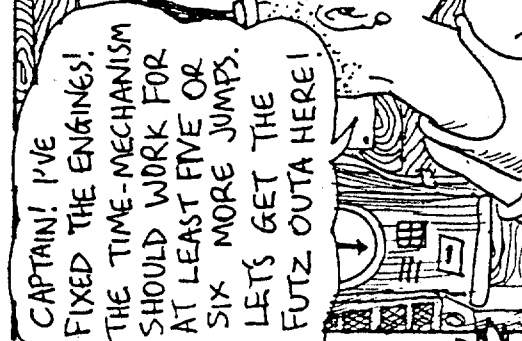 CAPTAIN! I'VE
FIXED THE ENGINES!
THE TIME-MECHANISM
SHOULD WORK FOR
AT LEAST FIVE OR
SIX MORE JUMPS.
LET'S GET THE
FUTZ OUTA HERE!